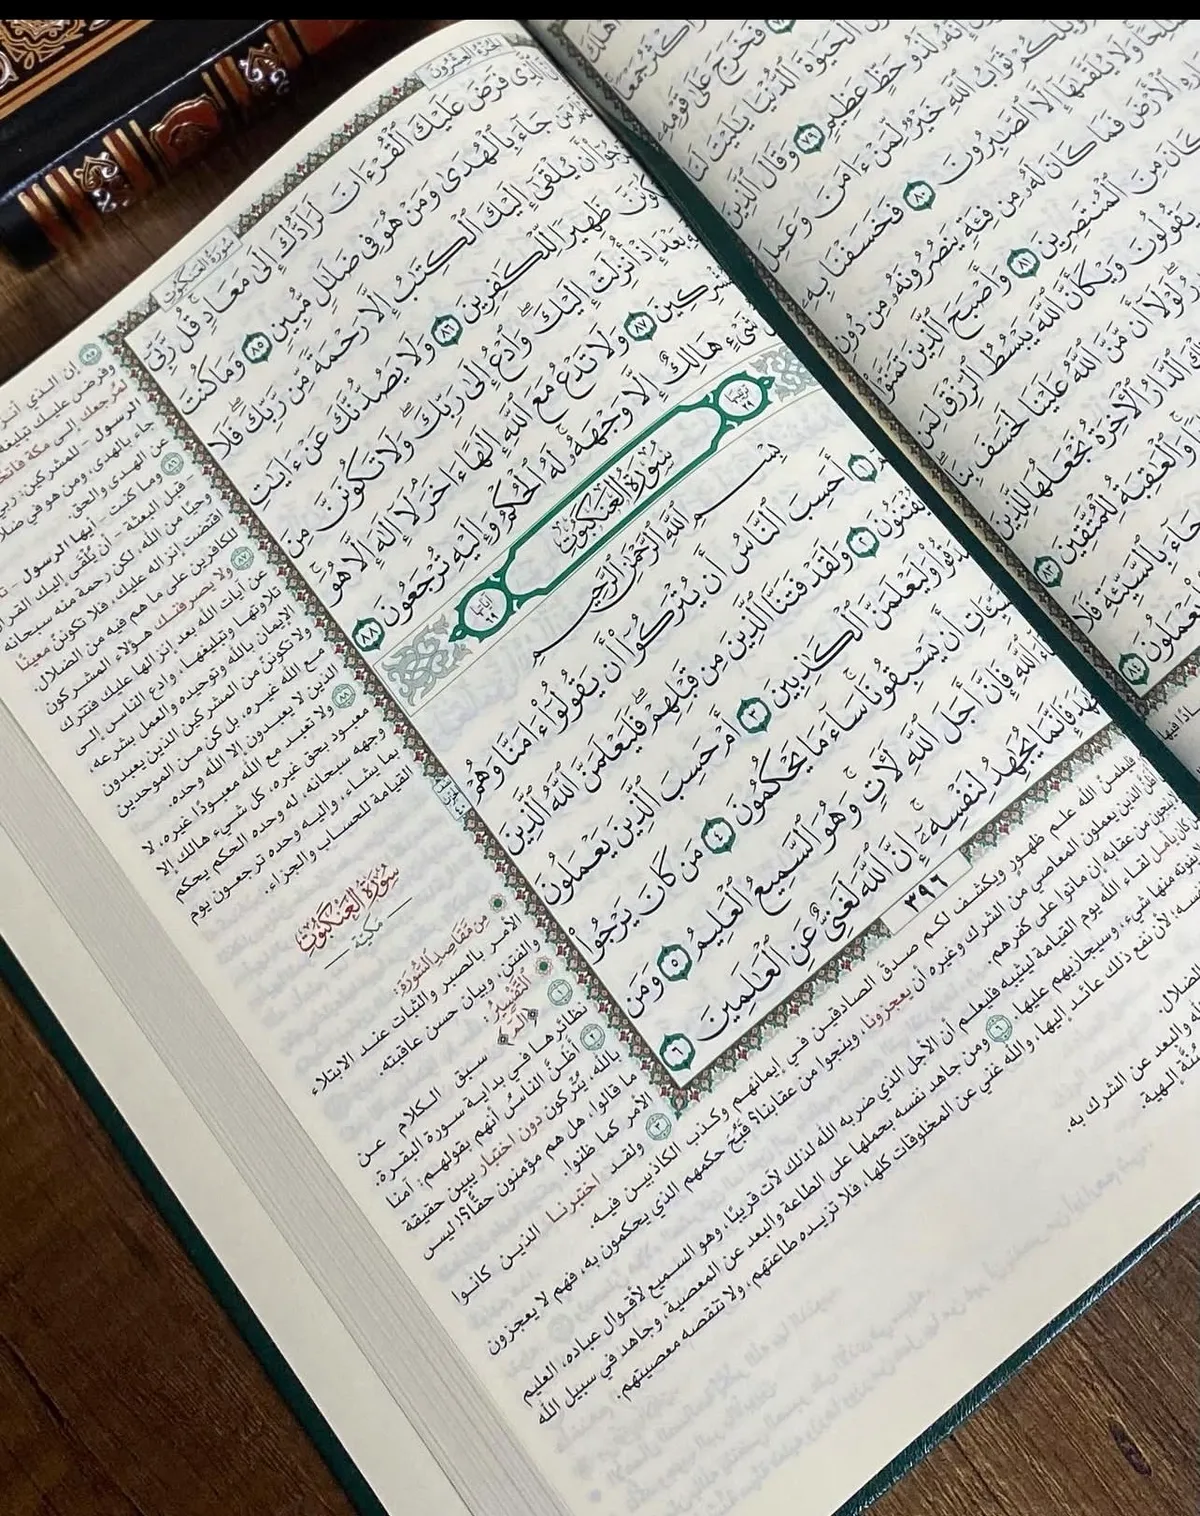 الجزء العشرون
سورة العنكبوت
ٱلَّذِي فَرَضَ عَلَيْكَ ٱلْقُرْءَانَ لَرَآدُّكَ إِلَىٰ مَعَادٍ قُل رَّبِّىٓ
مَن جَآءَ بِٱلْهُدَىٰ وَمَنْ هُوَ فِى ضَلَٰلٍ مُّبِينٍ ٨٥ وَمَا كُنتَ
أَن يُلْقَىٰٓ إِلَيْكَ ٱلْكِتَٰبُ إِلَّا رَحْمَةً مِّن رَّبِّكَ فَلَا
ظَهِيرًا لِّلْكَٰفِرِينَ ٨٦ وَلَا يَصُدُّنَّكَ عَنْ ءَايَٰتِ
بَعْدَ إِذْ أُنزِلَتْ إِلَيْكَ وَٱدْعُ إِلَىٰ رَبِّكَ وَلَا تَكُونَنَّ مِنَ
٨٧ وَلَا تَدْعُ مَعَ ٱللَّهِ إِلَٰهًا ءَاخَرَ لَآ إِلَٰهَ إِلَّا هُوَ
شَىْءٍ هَالِكٌ إِلَّا وَجْهَهُۥ لَهُ ٱلْحُكْمُ وَإِلَيْهِ تُرْجَعُونَ ٨٨
ترتيبها ٢٩
سورة العنكبوت
آياتها ٦٩
بِسْمِ ٱللَّهِ ٱلرَّحْمَٰنِ ٱلرَّحِيمِ
١ أَحَسِبَ ٱلنَّاسُ أَن يُتْرَكُوٓا۟ أَن يَقُولُوٓا۟ ءَامَنَّا وَهُمْ
يُفْتَنُونَ ٢ وَلَقَدْ فَتَنَّا ٱلَّذِينَ مِن قَبْلِهِمْ فَلَيَعْلَمَنَّ ٱللَّهُ ٱلَّذِينَ
وَلَيَعْلَمَنَّ ٱلْكَٰذِبِينَ ٣ أَمْ حَسِبَ ٱلَّذِينَ يَعْمَلُونَ
أَن يَسْبِقُونَا سَآءَ مَا يَحْكُمُونَ ٤ مَن كَانَ يَرْجُوا۟
ٱللَّهِ فَإِنَّ أَجَلَ ٱللَّهِ لَءَاتٍ وَهُوَ ٱلسَّمِيعُ ٱلْعَلِيمُ ٥ وَمَن
فَإِنَّمَا يُجَٰهِدُ لِنَفْسِهِۦٓ إِنَّ ٱللَّهَ لَغَنِىٌّ عَنِ ٱلْعَٰلَمِينَ ٦
٣٩٦
٨٥ إن الذي أنزل
وفرض عليك تبليغه
لمُرجعك إلى مكة فاتحًا
الرسول - للمشركين: ربي
جاء بالهدى، ومن هو في ضلال
عن الهدى والحق.
٨٦ وما كنت - أيها الرسول -
- قبل البعثة - أن يُلْقَى إليك القرآن
وحيًا من الله، لكن رحمة منه سبحانه
اقتضت إنزاله عليك، فلا تكوننّ معينًا
للكافرين على ما هم فيه من الضلال.
٨٧ ولا يصرفنك هؤلاء المشركون
عن آيات الله بعد إنزالها عليك فتترك
تلاوتها وتبليغها، وادع الناس إلى
الإيمان بالله وتوحيده والعمل بشرعه،
ولا تكوننّ من المشركين الذين يعبدون
مع الله غيره، بل كن من الموحدين
الذين لا يعبدون إلا الله وحده.
٨٨ ولا تعبد مع الله معبودًا غيره، لا
معبود بحق غيره، كل شيء هالك إلا
وجهه سبحانه، له وحده الحكم يحكم
بما يشاء، وإليه وحده ترجعون يوم
القيامة للحساب والجزاء.
سورة العنكبوت
مكية
من مقاصد السورة:
الأمر بالصبر والثبات عند الابتلاء
والفتن، وبيان حسن عاقبته.
التفسير:
١ ﴿الم﴾ سبق الكلام عن
نظائرها في بداية سورة البقرة.
٢ أظنّ الناسُ أنهم بقولهم: آمنا
بالله، يُتْركون دون اختبار يبين حقيقة
ما قالوا، هل هم مؤمنون حقًّا؟! ليس
الأمر كما ظنوا.
٣ ولقد اختبرنا الذين كانوا
فليعلمنّ الله علم ظهور ويكشف لكم صدق الصادقين في إيمانهم وكذب الكاذبين فيه.
الذين يعملون المعاصي من الشرك وغيره أن يعجزونا، وينجوا من عقابنا؟ قَبُحَ حكمهم الذي يحكمون به، فهم لا يعجزون
ينجون من عقابه إن ماتوا على كفرهم.
كان يأمل لقاء الله يوم القيامة ليثيبه فليعلم أن الأجل الذي ضربه الله لذلك لآت قريبًا، وهو السميع لأقوال عباده، العليم
لا يفوته منها شيء، وسيجازيهم عليها. ٦ ومن جاهد نفسه بحملها على الطاعة والبعد عن المعصية، وجاهد في سبيل الله
لأن نفع ذلك عائد إليها، والله غني عن المخلوقات كلها، فلا تزيده طاعتهم، ولا تنقصه معصيتهم.
الضلال.
والبعد عن الشرك به.
سُنَّة إلهية.
فَخَرَجَ عَلَىٰ قَوْمِهِۦ
ٱلْحَيَوٰةَ ٱلدُّنْيَا يَٰلَيْتَ لَنَا
إِنَّهُۥ لَذُو حَظٍّ عَظِيمٍ ٧٩ وَقَالَ ٱلَّذِينَ
وَيْلَكُمْ ثَوَابُ ٱللَّهِ خَيْرٌ لِّمَنْ ءَامَنَ وَعَمِلَ
صَٰلِحًا وَلَا يُلَقَّىٰهَآ إِلَّا ٱلصَّٰبِرُونَ ٨٠ فَخَسَفْنَا بِهِۦ
ٱلْأَرْضَ فَمَا كَانَ لَهُۥ مِن فِئَةٍ يَنصُرُونَهُۥ مِن دُونِ
كَانَ مِنَ ٱلْمُنتَصِرِينَ ٨١ وَأَصْبَحَ ٱلَّذِينَ تَمَنَّوْا۟
يَقُولُونَ وَيْكَأَنَّ ٱللَّهَ يَبْسُطُ ٱلرِّزْقَ لِمَن
لَوْلَآ أَن مَّنَّ ٱللَّهُ عَلَيْنَا لَخَسَفَ بِنَا
ٱلدَّارُ ٱلْءَاخِرَةُ نَجْعَلُهَا لِلَّذِينَ
وَٱلْعَٰقِبَةُ لِلْمُتَّقِينَ ٨٣
جَآءَ بِٱلسَّيِّئَةِ فَلَا
يَعْمَلُونَ ٨٤